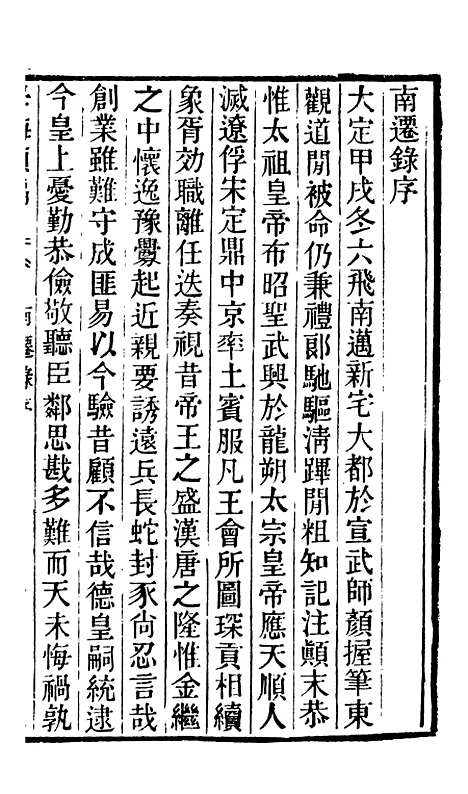 南遷錄序
大定甲戌冬六飛南邁新宅大都於宣武師顏握筆東
觀道閒被命仍秉禮郞馳驅淸蹕閒粗知記注顚末恭
惟太祖皇帝布昭聖武興於龍朔太宗皇帝應天順人
滅遼俘宋定鼎中京率土賓服凡王會所圖琛貢相續
象胥効職離任迭奏視昔帝王之盛漢唐之隆惟金繼
之中懷逸豫釁起近親要誘遠兵長蛇封豕尙忍言哉
創業雖難守成匪易以今驗昔顧不信哉德皇嗣統逮
今皇上憂勤恭儉敬聽臣鄰思戡多難而天未悔禍孰
南遷錄序